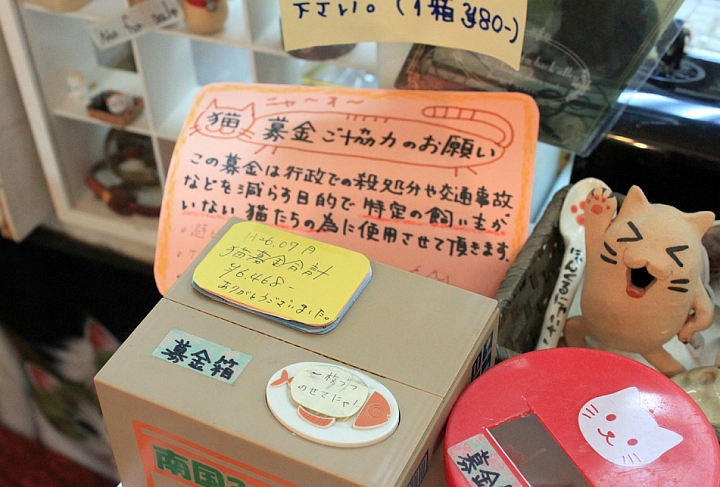 下さい。(1箱¥80-)
ニャ〜オ〜
猫 募金ご協力のお願い
この募金は行政での殺処分や交通事故
などを減らす目的で 特定の飼い主が
いない 猫たちの為に使用させて頂きます。
H26.07月
猫募金合計
¥6.468-
ありがとうございました。
募金箱
一枚づつ
のせてにゃ!
南国
募金
ほんてるにゃん